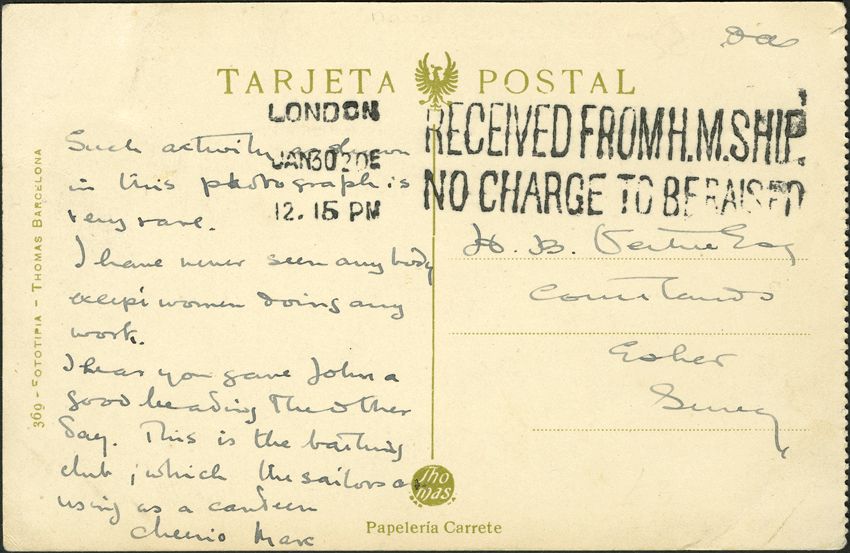 Da
TARJETA POSTAL
LONDON
JAN 30 20E
12.15 PM
RECEIVED FROM H.M.SHIP.
NO CHARGE TO BE RAISED
Such activity as shown
in this photograph is
very rare.
I have never seen any body
except women doing any
work.
I hear you gave John a
good beading the other
day. This is the bathing
club, which the sailors are
using as a canteen
Cheerio Marc
H. B. Esq
Esher
Surrey
369 - FOTOTIPIA - THOMAS BARCELONA
Thomas
Papelería Carrete